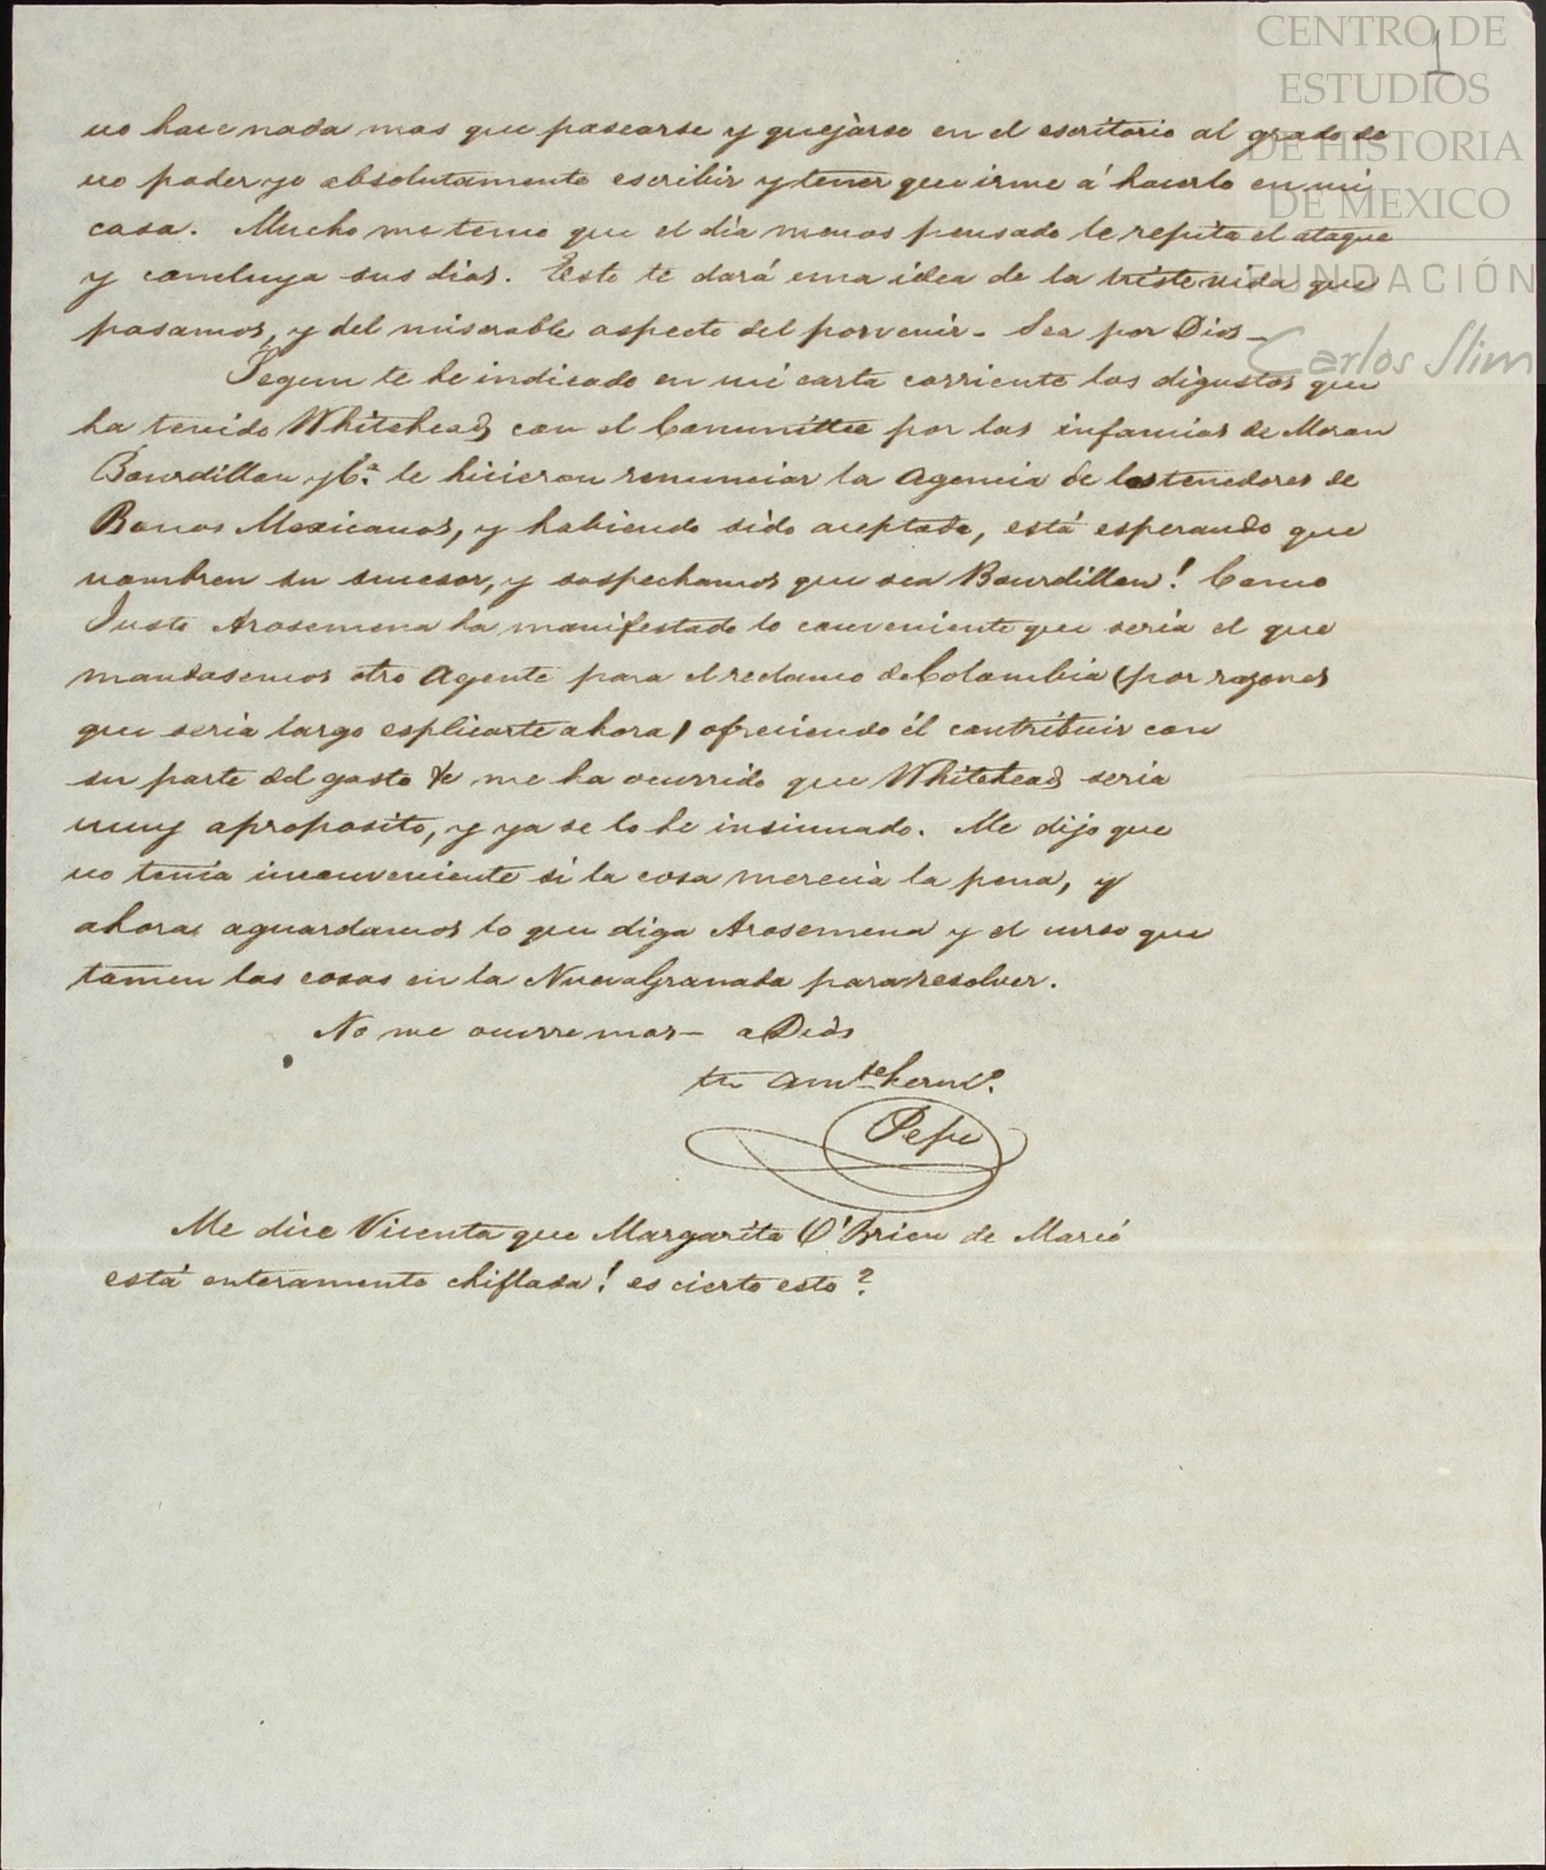 CENTRO DE
ESTUDIOS
DE HISTORIA
DE MEXICO
FUNDACIÓN
Carlos Slim
1
no hace nada mas que pasearse y quejàrse en el escritorio al grado de
no poder yo absolutamente escribir y tener que irme á hacerlo en mi
casa. Mucho me temo que el dia menos pensado le repita el ataque
y concluya sus dias. Esto te dará una idea de la triste vida que
pasamos, y del miserable aspecto del porvenir - Sea por Dios -
Segun te he indicado en mi carta corriente los digustos que
ha tenido Whitehead con el Committee por las infamias de Moran
Bourdillon y Ca. le hicieron renunciar la Agencia de los tenedores de
Bonos Mexicanos, y habiendo sido aceptada, está esperando que
nombren su sucesor, y sospechamos que sea Bourdillon! Como
Justo Arosemena ha manifestado lo conveniente que seria el que
mandasemos otro Agente para el reclamo de Colombia (por razones
que seria largo esplicarte ahora) ofreciendo él contribuir con
su parte del gasto &c me ha ocurrido que Whitehead seria
muy aproposito, y ya se lo he insinuado. Me dijo que
no tenia inconveniente si la cosa merecia la pena, y
ahora aguardamos lo que diga Arosemena y el curso que
tomen las cosas en la Nueva Granada para resolver.
No me ocurre mas - a Dios
tu amte. hermo.
Pepe
Me dice Vicenta que Margarita O'Brien de Marió
está enteramente chiflada! es cierto esto?